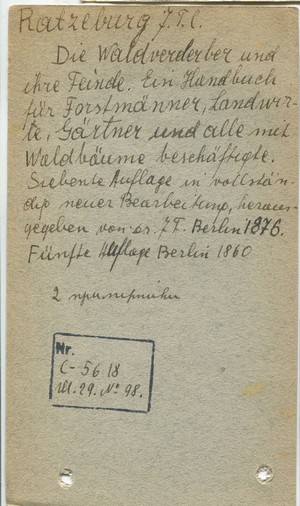 Ratzeburg J.T.C.
Die Waldverderber und
ihre Feinde. Ein Handbuch
für Forstmänner, Landwir-
te, Gärtner und alle mit
Waldbäume beschäftigte.
Siebente Auflage in vollstän-
dip neuer Bearbeitung, heraus-
gegeben von dr. J.T. Berlin 1876.
Fünfte Auflage Berlin 1860
2
Nr.
C-5618
Ш.29. № 98.